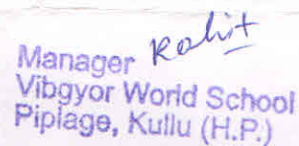 Manager Rohit
Vibgyor World School
Piplage, Kullu (H.P.)